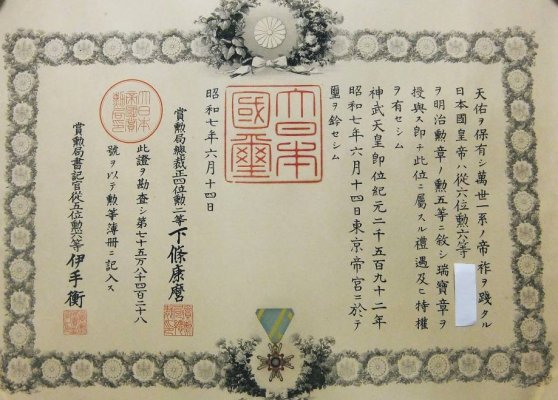 天佑ヲ保有シ萬世一系ノ帝祚ヲ踐タル
日本國皇帝ハ從六位勲六等
ヲ明治勲章ノ勲五等ニ敍シ瑞寶章ヲ
授與ス即チ此位ニ屬スル禮遇及ヒ特權
ヲ有セシム
神武天皇即位紀元二千五百九十二年
昭和七年六月十四日東京帝宮ニ於テ
璽ヲ鈐セシム
大日本
國璽
昭和七年六月十四日
賞勲局總裁正四位勲二等下條康麿
此證ヲ勘査シ第七十五万八千四百二十八
號ヲ以テ勲等簿冊ニ記入ス
賞勲局書記官從五位勲六等伊手衡